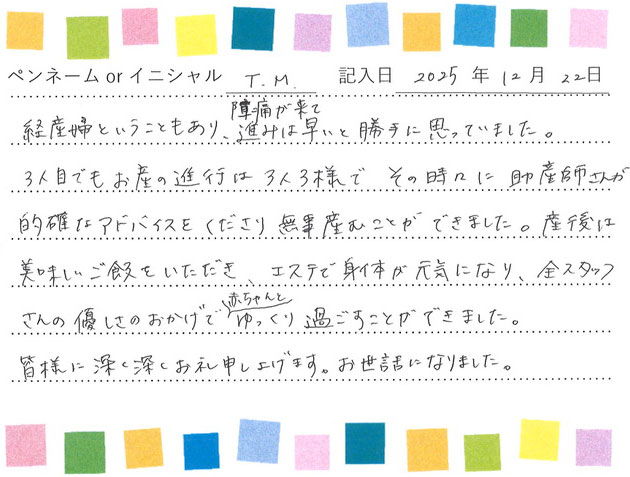 ペンネーム or イニシャル T.M. 記入日 2025 年 12 月 22 日
陣痛が来て
経産婦ということもあり、進みは早いと勝手に思っていました。
3人目でもお産の進行は3人3様で その時々に 助産師さんが
的確なアドバイスをくださり 無事産むことができました。産後は
美味しいご飯をいただき、エステで身体が元気になり、全スタッフ
赤ちゃんと
さんの優しさのおかげで ゆっくり過ごすことができました。
皆様に深く深くお礼申し上げます。お世話になりました。